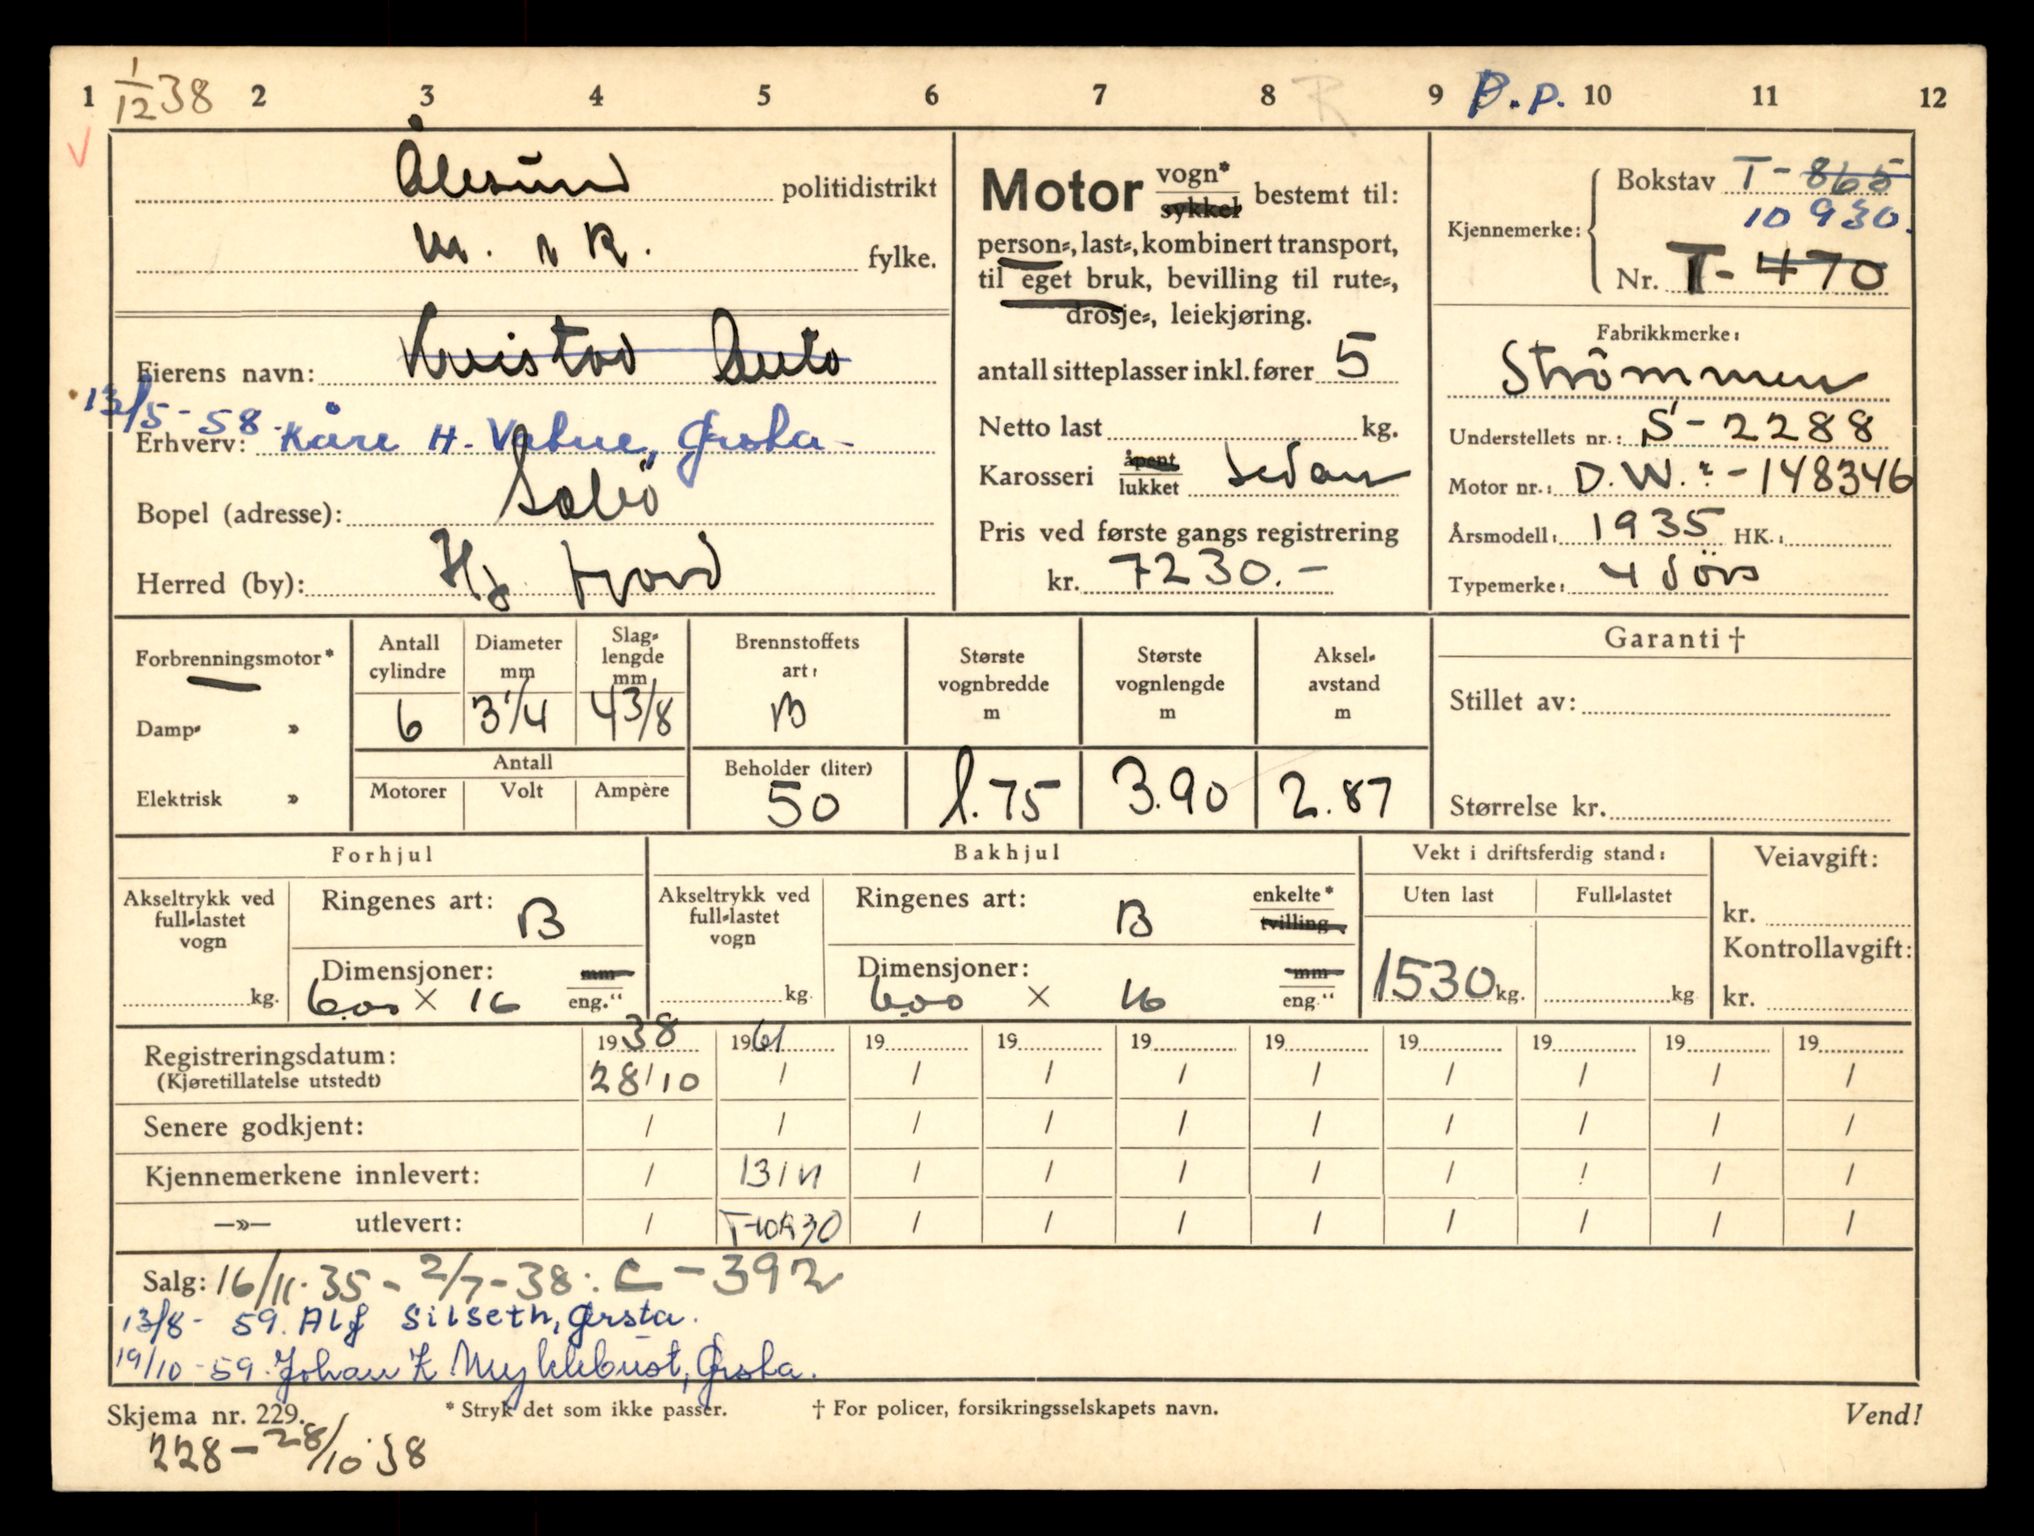 1 1/12 38 2 3 4 5 6 7 8 R 9 B.p. 10 11 12
V
Ålesund politidistrikt
M. & R. fylke.
Eierens navn: Kristov Auto
13/5-58. Erhverv: Kåre H. Vatne, Ørsta-
Bopel (adresse): Sæbö
Herred (by): Hj. fjord
Motor vogn* sykkel bestemt til:
person-, last-, kombinert transport,
til eget bruk, bevilling til rute-,
drosje-, leiekjøring.
antall sitteplasser inkl. fører 5
Netto last kg.
Karosseri åpent lukket Sedan
Pris ved første gangs registrering
kr. 7230.-
Kjennemerke: Bokstav T-865
10930.
Nr. T-470
Fabrikkmerke:
Strömmen
Understellets nr.: S-2288
Motor nr.: D.W.:-148346
Årsmodell: 1935 HK.:
Typemerke: 4 dörs
Forbrenningsmotor*
Damp- »
Elektrisk »
Antall cylindre 6
Diameter mm 3 1/4
Slag-lengde mm 4 3/8
Antall
Motorer Volt Ampère
Brennstoffets art: B
Beholder (liter) 50
Største vognbredde m 1.75
Største vognlengde m 3.90
Aksel-avstand m 2.87
Garanti †
Stillet av:
Størrelse kr.
Forhjul
Akseltrykk ved full-lastet vogn
kg.
Ringenes art: B
Dimensjoner: mm
6.00 × 16 eng."
Bakhjul
Akseltrykk ved full-lastet vogn
kg.
Ringenes art: B enkelte* tvilling
Dimensjoner: mm
6.00 × 16 eng."
Vekt i driftsferdig stand:
Uten last Full-lastet
1530 kg. kg
Veiavgift:
kr.
Kontrollavgift:
kr.
1938 1961 19 19 19 19 19 19 19 19
Registreringsdatum: 28/10 / / / / / / / / /
(Kjøretillatelse utstedt)
Senere godkjent: / / / / / / / / / /
Kjennemerkene innlevert: / 13/11 / / / / / / / /
—»— utlevert: / T-10930 / / / / / / / /
Salg: 16/11-35 - 2/7-38: C-392
13/8- 59. Alf Silseth, Ørsta.
19/10-59. Johan K Myklebust, Ørsta.
Skjema nr. 229. * Stryk det som ikke passer. † For policer, forsikringsselskapets navn. Vend!
228 - 28/10.38